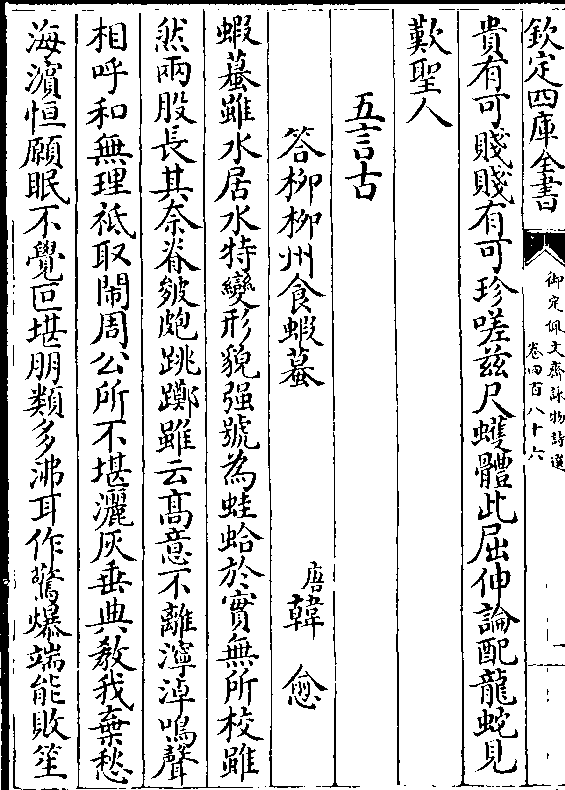 欽定四庫全書
御定佩文齋詠物詩選
卷四百八十六
一
貴有可賤賤有可珍嗟兹尺蠖體此屈伸論配龍蛇見
歎聖人
五言古
答柳柳州食蝦蟇
唐韓愈
蝦蟇雖水居水特變形貌强號為蛙蛤於實無所校雖
然兩股長其奈脊皴皰跳躑雖云髙意不離濘淖鳴聲
相呼和無理祗取閙周公所不堪灑灰垂典教我棄愁
海濱恒願眠不覺叵堪朋類多沸耳作驚爆端能敗笙